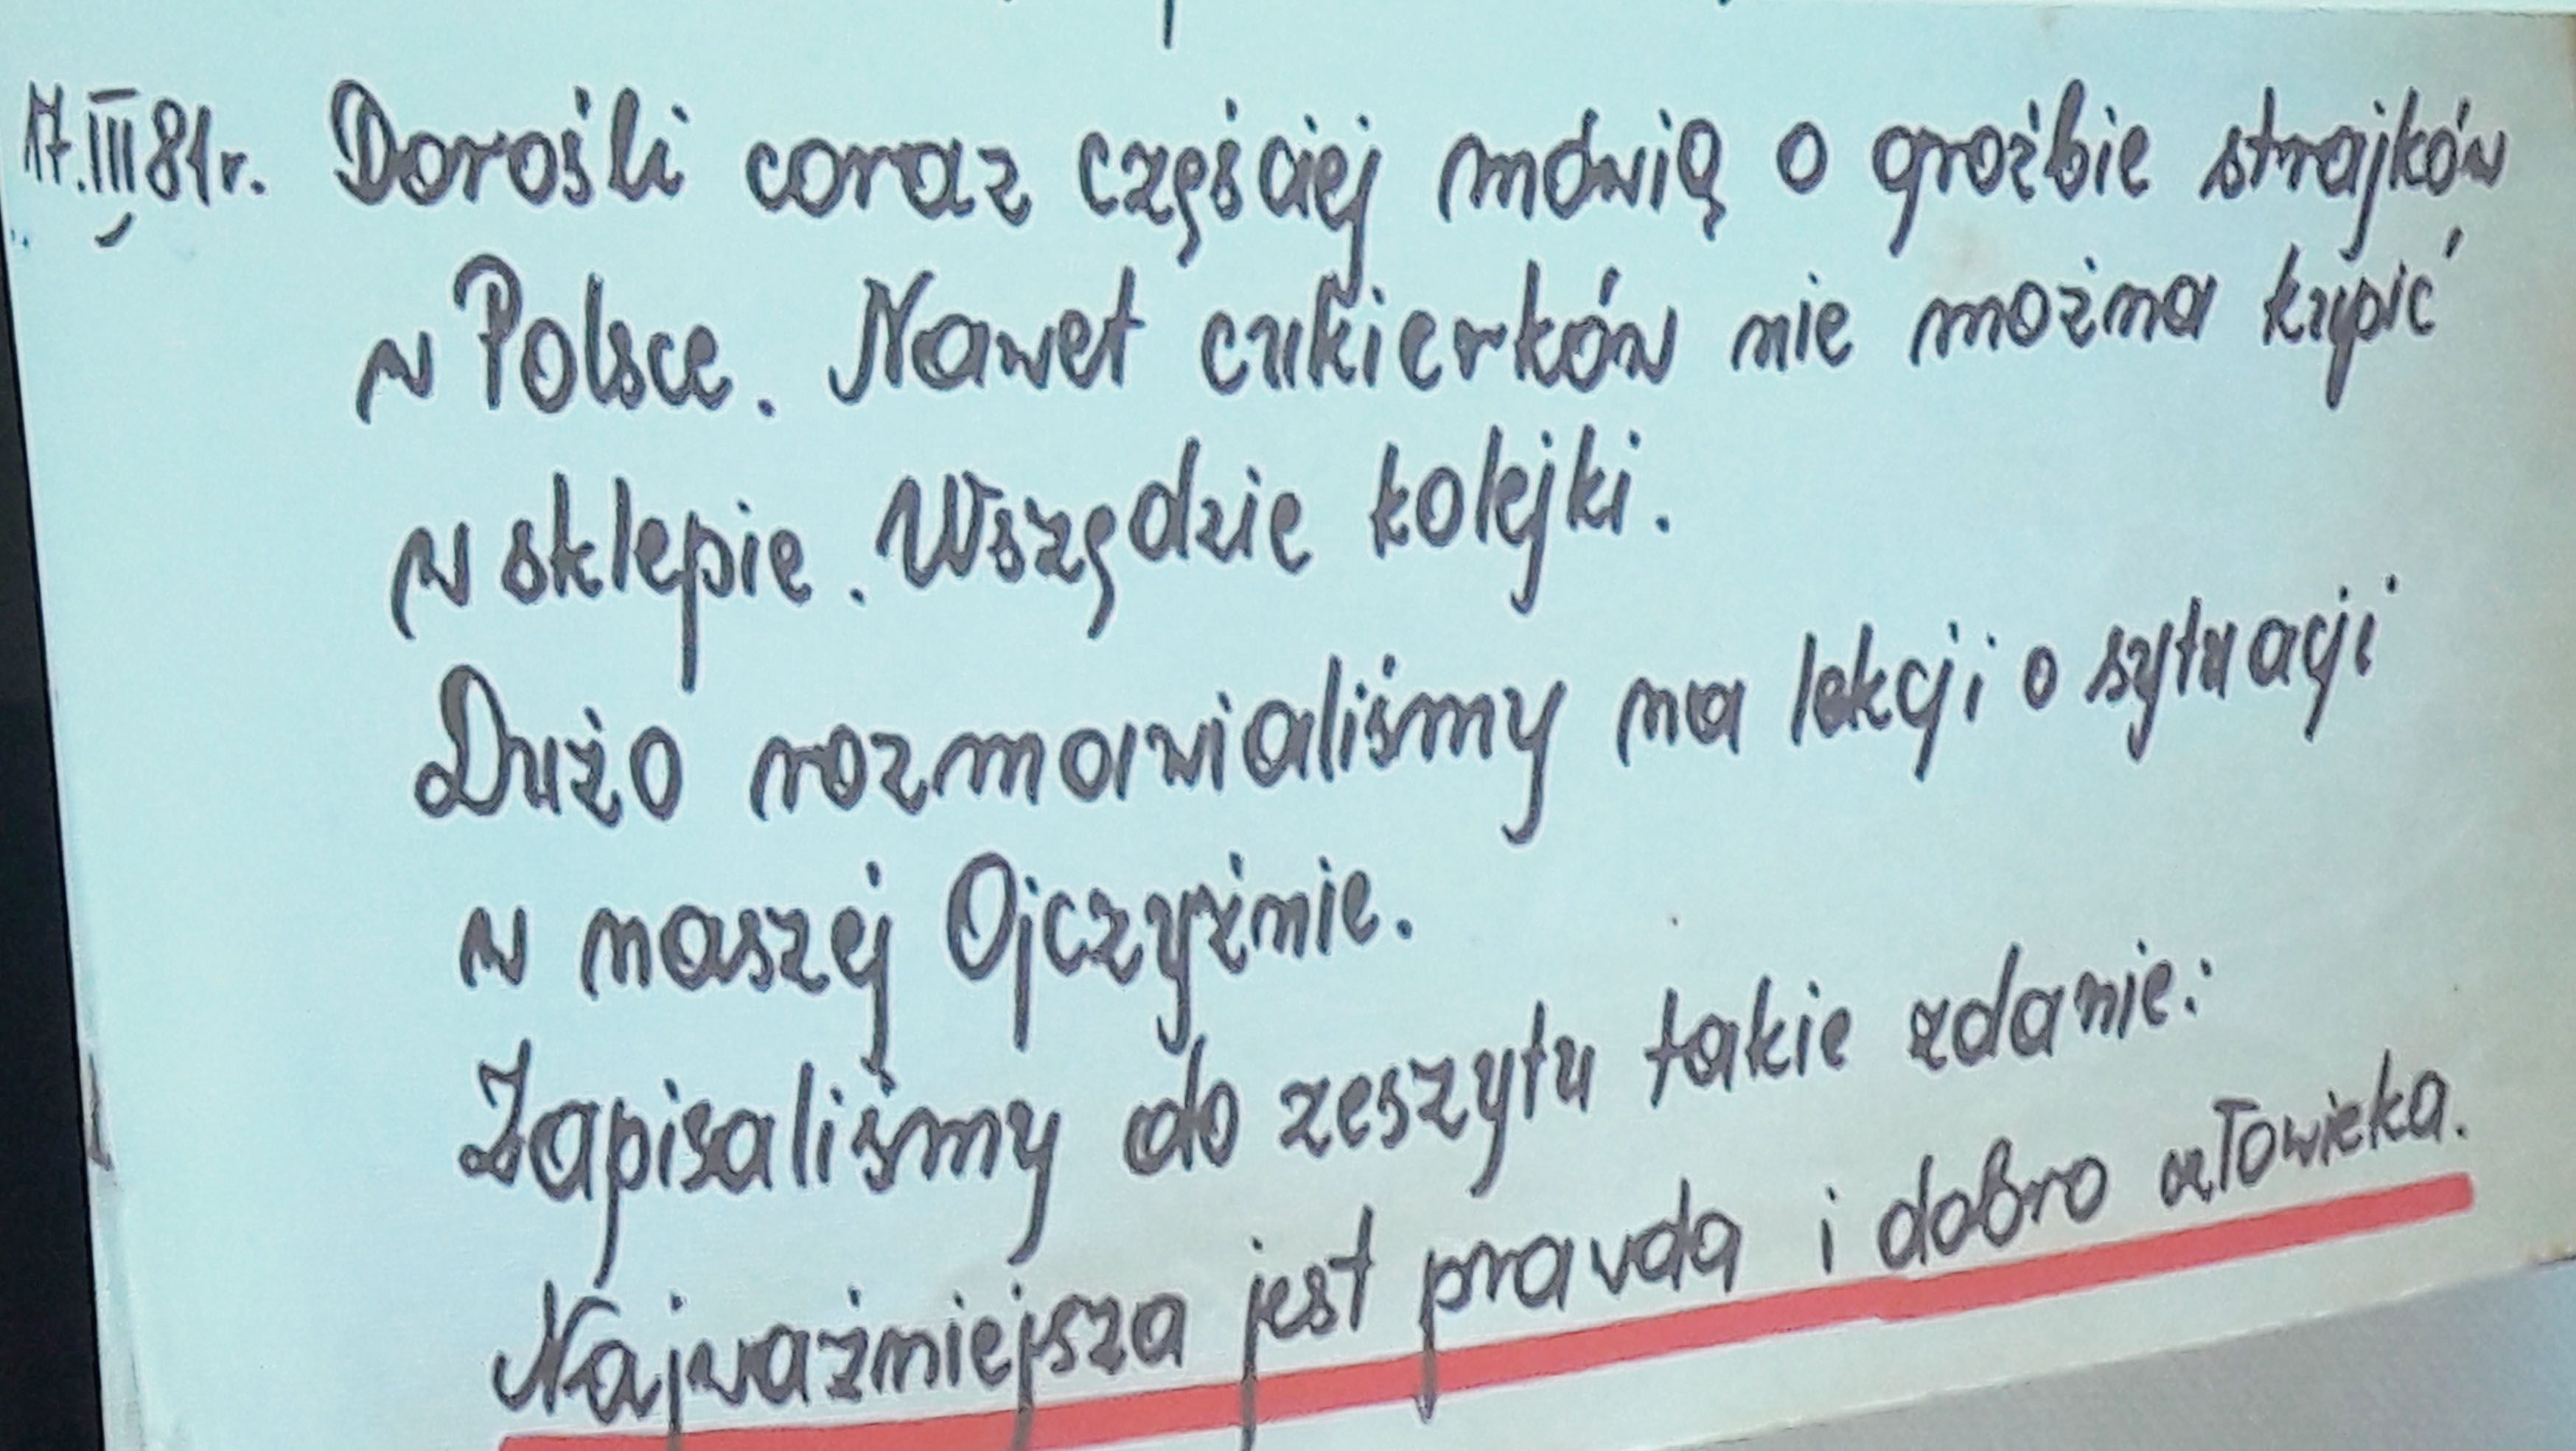 17.III 81r. Dorośli coraz częściej mówią o groźbie strajków
w Polsce. Nawet cukierków nie można kupić
w sklepie. Wszędzie kolejki.
Dużo rozmawialiśmy na lekcji o sytuacji
w naszej Ojczyźnie.
Zapisaliśmy do zeszytu takie zdanie:
Najważniejsza jest prawda i dobro człowieka.